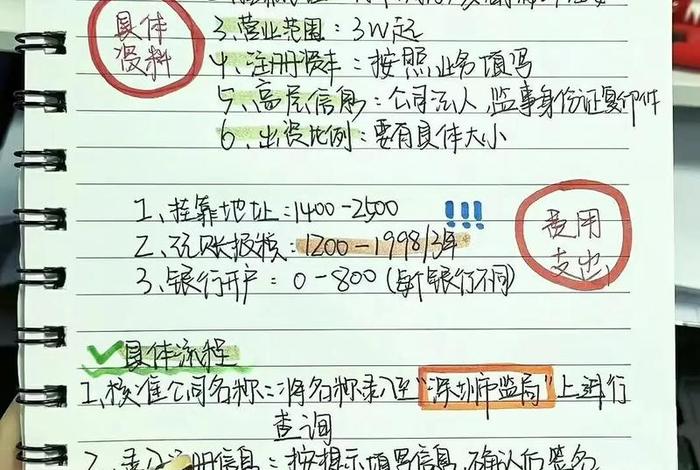 具体
资料
3、营业范围：3W起
4、注册资本：按照业务项写
5、高层信息：公司法人、监事身份证复印件
6、出资比例：要有具体大小
1、挂靠地址：1400-2500 !!!
2、记账报税：1200-1998/3年
3、银行开户：0-800(每个银行不同)
费用
支出
具体流程
1、核准公司名称：将名称录入至"深圳市监局"上进行
查询
2、录入注册信息：按提示填写信息,确认后签名